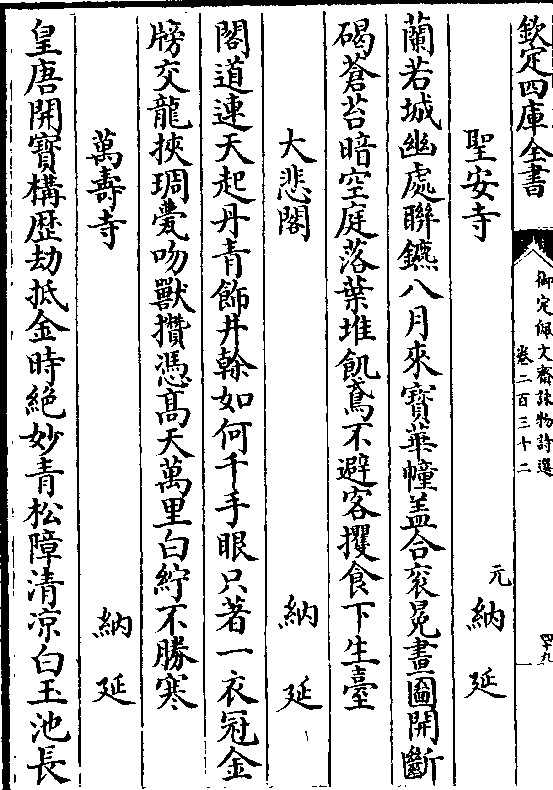 欽定四庫全書
御定佩文齋詠物詩選
卷二百三十二
四十九
聖安寺
元 納延
蘭若城幽處聯鑣八月來寳華幢盖合衮冕畫圗開斷
碣蒼苔暗空庭落葉堆飢鳶不避客攫食下生臺
大悲閣
納延
閣道連天起丹青飾井榦如何千手眼只著一衣冠金
牓交龍挾琱甍吻獸攢憑髙天萬里白紵不勝寒
萬壽寺
納延
皇唐開寳構歴劫抵金時絶妙青松障清凉白玉池長